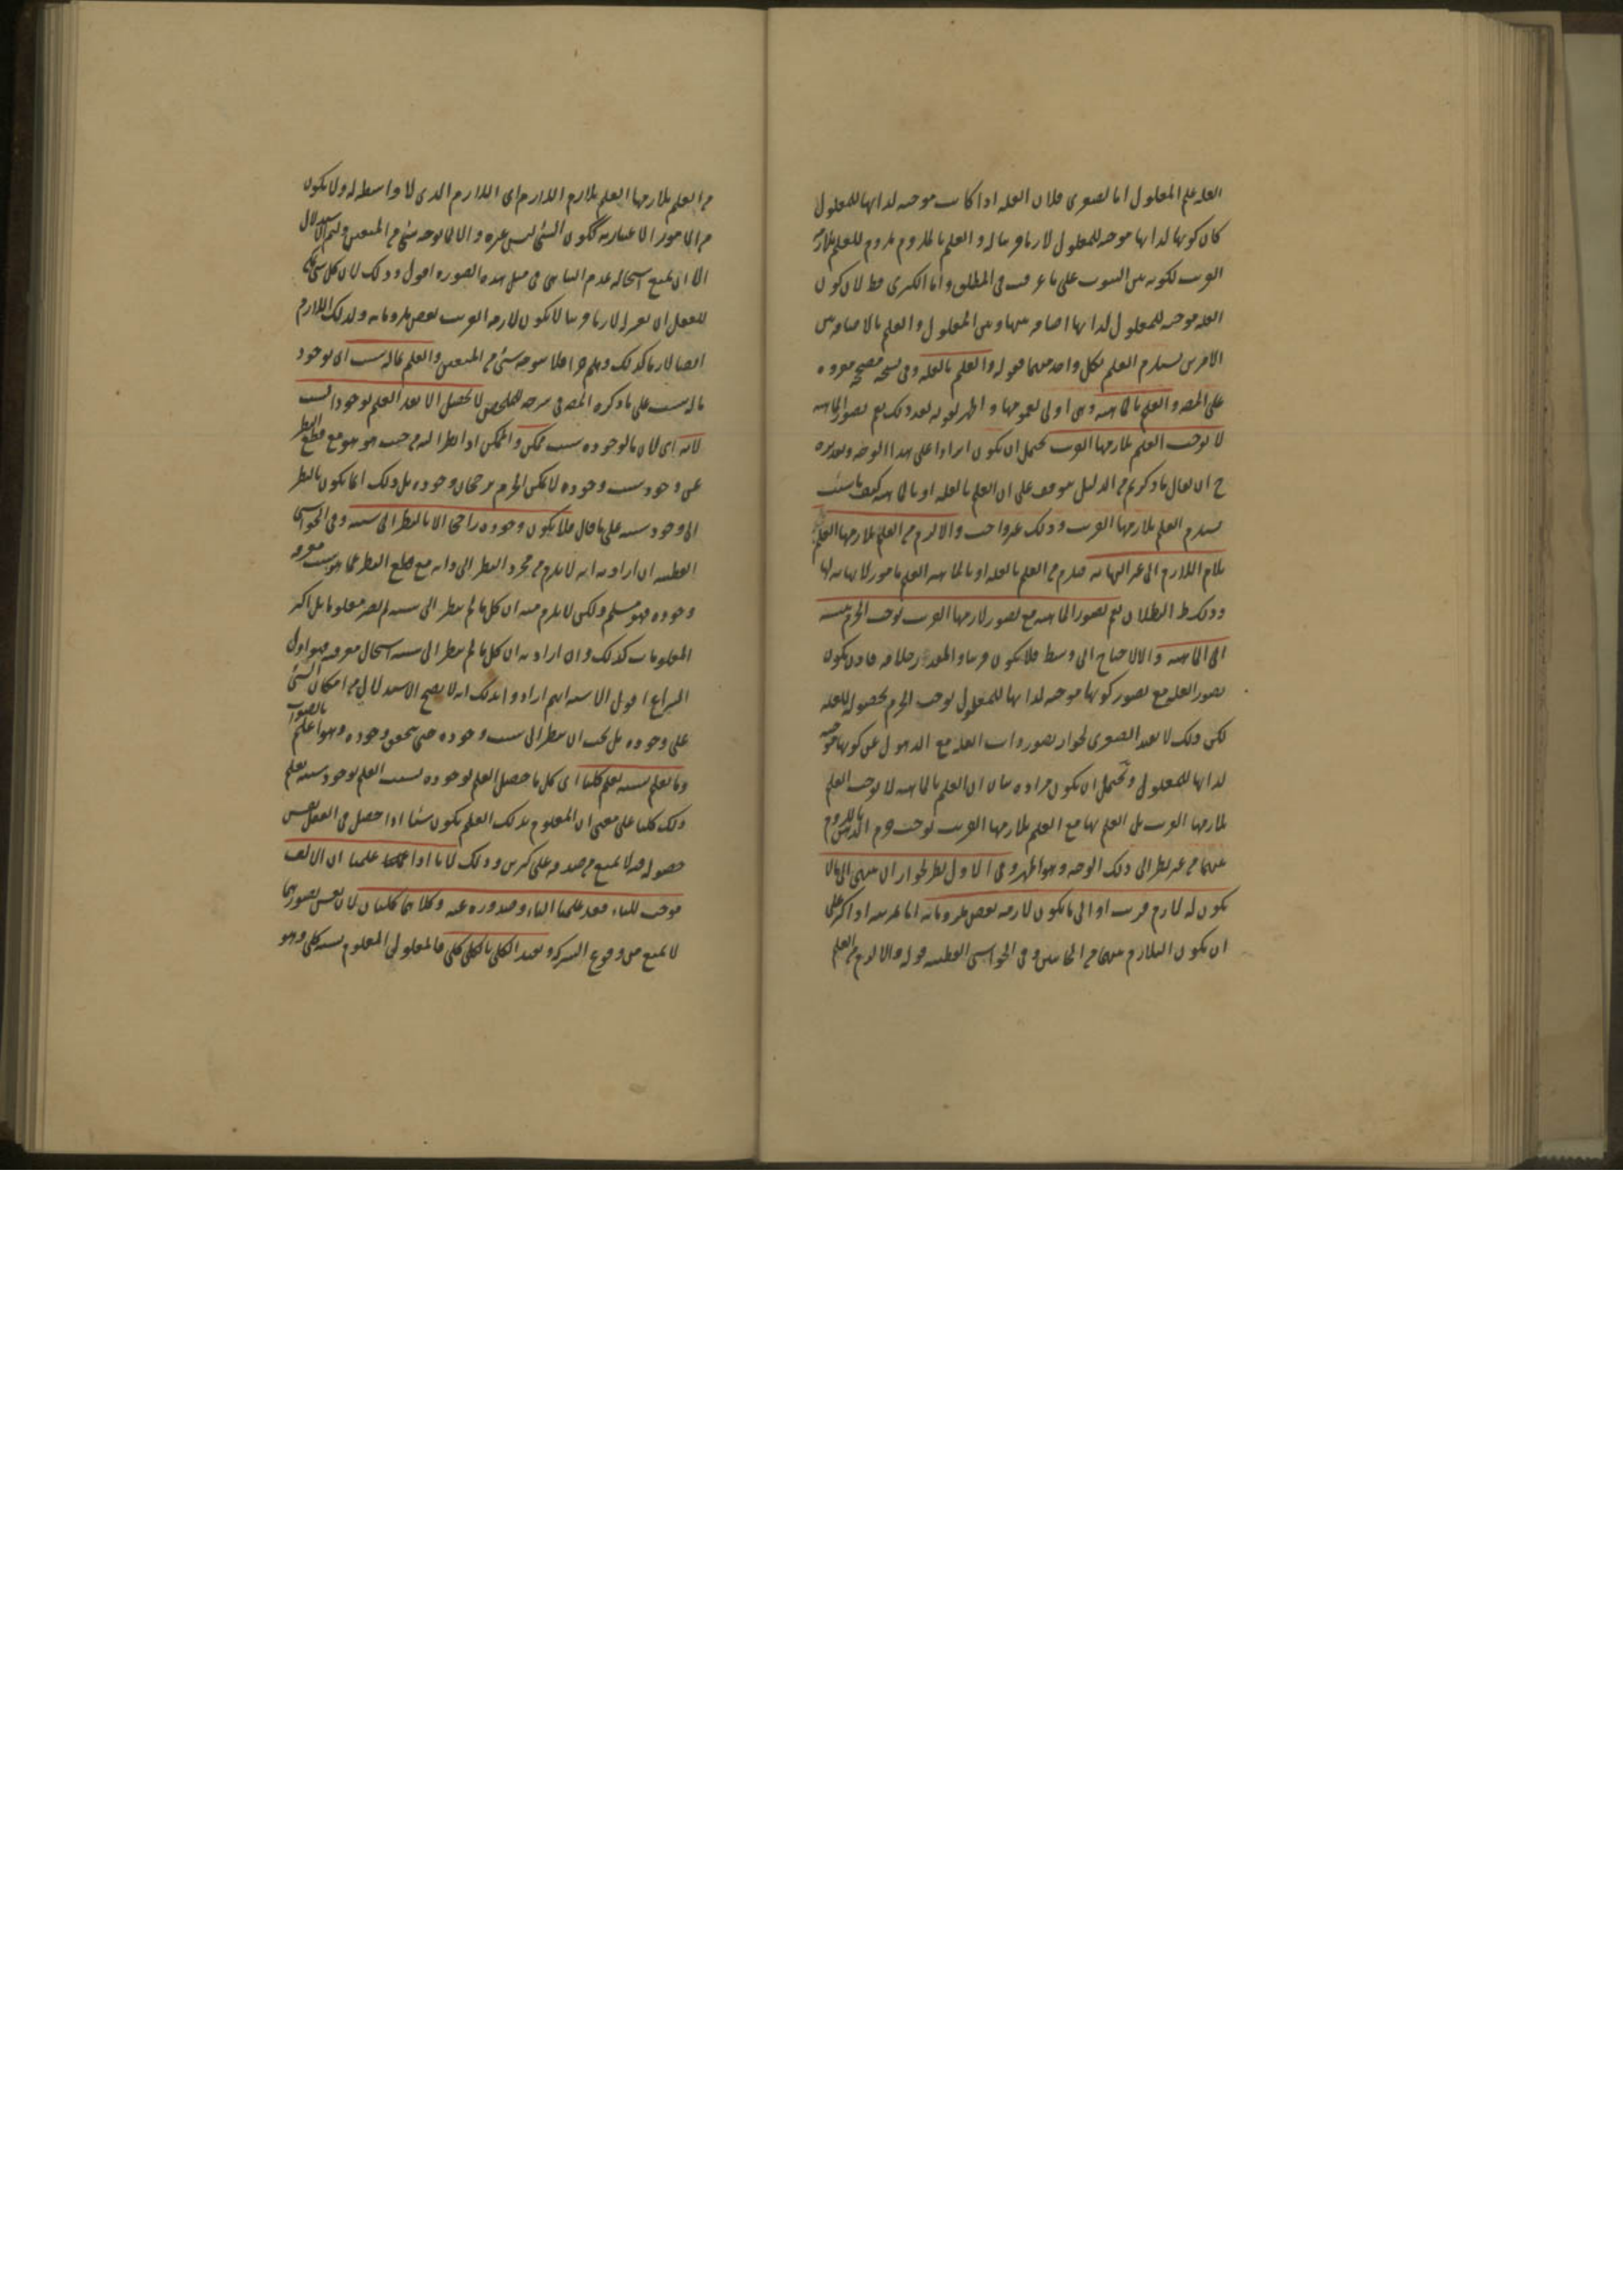 العله علم المعلول اما الصغرى فلان العله اذا كانت موجبه لذاتها للمعلول
كان كونها لذاتها موجبه للمعلول لازما قريبا له والعلم بالملزوم ملزوم للعلم بلازمه
القريب لكونه بين الثبوت على ما عرفت فى المنطق واما الكبرى فظ لان كون
العله موجبه للمعلول لذاتها اضافه بينها وبين المعلول والعلم بالاضافه بين
الامرين يستلزم العلم بكل واحد منهما قوله والعلم بالعله وفى نسخه مصححه مقروه
على المص والعلم بالماهيه وهى اولى لعمومها واظهر لقوله بعد ذلك نعم تصور الماهيه
لا يوجب العلم بلازمها القريب يحتمل ان يكون ايرادا على هذا الوجه وتقديره
ح ان يقال ما ذكرتم من الدليل موقوف على ان العلم بالعله او بالماهيه كيف ما شئت
يستلزم العلم بلازمها القريب وذلك غير واجب والا لزم من العلم بلازمها العلم
بلازم اللازم الى غير النهايه فيلزم من العلم بالعله او بالماهيه العلم بامور لا نهايه لها
وذلك ظ البطلان نعم تصور الماهيه مع تصور لازمها القريب يوجب الجزم بنسبته
الى الماهيه والا لاحتاج الى وسط فلا يكون قريبا والمقدر خلافه فاذن يكون
تصور العله مع تصور كونها موجبه لذاتها للمعلول يوجب الجزم بحصوله للعله
لكن ذلك لا يفيد الصغرى لجواز تصور ذات العله مع الذهول عن كونها موجبه
لذاتها للمعلول ويحتمل ان يكون مراده بيان ان العلم بالماهيه لا يوجب العلم
بلازمها القريب بل العلم بها مع العلم بلازمها القريب يوجب جزم الذهن باللزوم
بينهما من غير نظر الى ذلك الوجه وهو اظهر وفى الاول نظر لجواز ان ينتهى الى ما لا
يكون له لازم قريب او الى ما يكون لازمه بعض ملزوماته اما بمرتبه او اكثر على
ان يكون التلازم بينهما من الجانبين وفى الحواشى القطبيه قوله والا لزم من العلم
من العلم بلازمها العلم بلازم اللازم اى اللازم الذى لا واسطه له ولا يكون
من الامور الاعتباريه ككون الشئ ليس غيره والا لم يوجد شئ من المتعين وليتم الاستدلال
الا ان يمنع استحاله عدم التناهى فى مثل هذه الصوره اقول وذلك لان كل شئ يمكن
للعقل ان يعتبر له لازما قريبا لا يكون لازمه القريب بعض ملزوماته ولذلك اللازم
ايضا لازما كذلك وهلم جرا فلا يوجد شئ من المتعين والعلم بما له سبب اى بوجود
ما له سبب على ما ذكره المص فى شرحه للملخص لا يحصل الا بعد العلم بوجود السبب
لانه اى لان ما لوجوده سبب ممكن والممكن اذا نظر اليه من حيث هو هو مع قطع النظر
عن وجود سبب وجوده لا يمكن الجزم برجحان وجوده بل ذلك انما يكون بالنظر
الى وجود سببه على ما قال فلا يكون وجوده راجحا الا بالنظر الى سببه وفى الحواشى
القطبيه ان اراد به انه لا يلزم من مجرد النظر الى ذاته مع قطع النظر عما هو سبب معرفه
وجوده فهو مسلم ولكن لا يلزم منه ان كل ما لم ينظر الى سببه لم يصر معلوما بل اكثر
المعلومات كذلك وان اراد به ان كل ما لم ينظر الى سببه استحال معرفته فهو اول
النزاع اقول الاشبه انهم ارادوا بذلك انه لا يصح الاستدلال من امكان الشئ
على وجوده بل يجب ان ينظر الى سبب وجوده حتى يتحقق وجوده وهو اعلم بالصواب
وما يعلم بسببه يعلم كليا اى كل ما حصل العلم بوجوده بسبب العلم بوجود سببه يعلم
ذلك كليا على معنى ان المعلوم بذلك العلم يكون شيئا اذا حصل فى العقل نفس
حصوله فيه لا يمنع من صدقه على كثيرين وذلك لانا اذا علمنا ان الالف
موجب للباء فقد علمنا الباء وصدوره عنه وكلاهما كليان لان نفس تصورهما
لا يمنع من وقوع الشركه وتقييد الكلى بالكلى كلى فالمعلول اى المعلوم بسببه كلى وهو